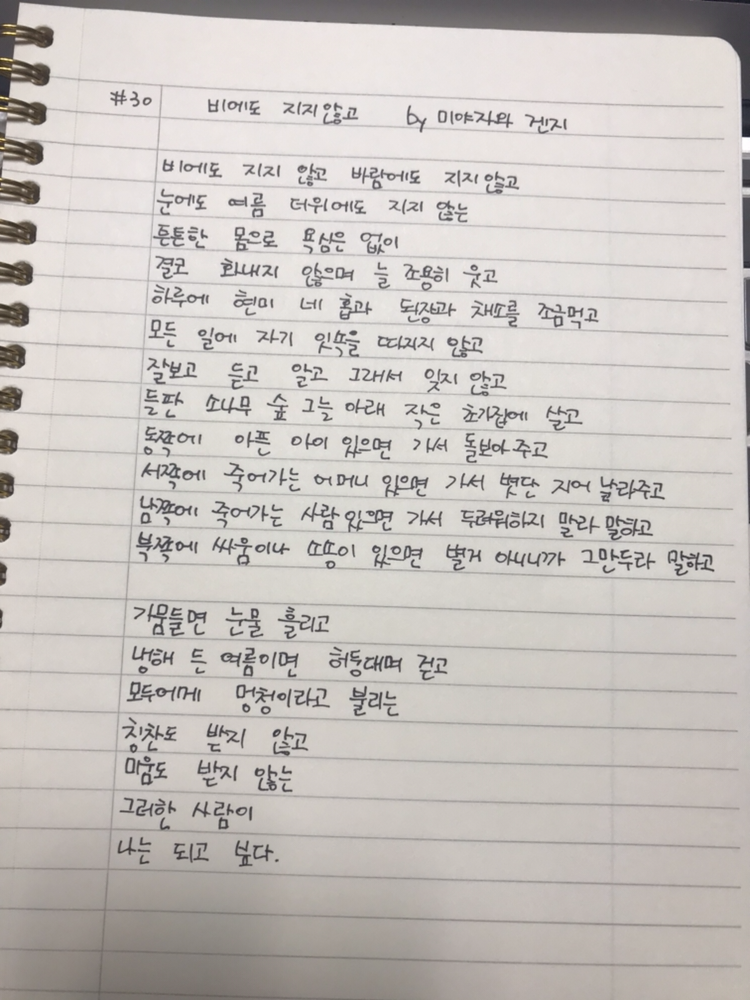 #30 비에도 지지않고 by 미야자와 겐지
비에도 지지 않고 바람에도 지지않고
눈에도 여름 더위에도 지지 않는
튼튼한 몸으로 욕심은 없이
결코 화내지 않으며 늘 조용히 웃고
하루에 현미 네 홉과 된장과 채소를 조금먹고
모든 일에 자기 잇속을 따지지 않고
잘보고 듣고 알고 그래서 잊지 않고
들판 소나무 숲 그늘 아래 작은 초가집에 살고
동쪽에 아픈 아이 있으면 가서 돌보아주고
서쪽에 죽어가는 어머니 있으면 가서 볏단 지어 날라주고
남쪽에 죽어가는 사람있으면 가서 두려워하지 말라 말하고
북쪽에 싸움이나 소송이 있으면 별거 아니니까 그만두라 말하고
가뭄들면 눈물 흘리고
냉해 든 여름이면 허둥대며 걷고
모두에게 멍청이라고 불리는
칭찬도 받지 않고
미움도 받지 않는
그러한 사람이
나는 되고 싶다.